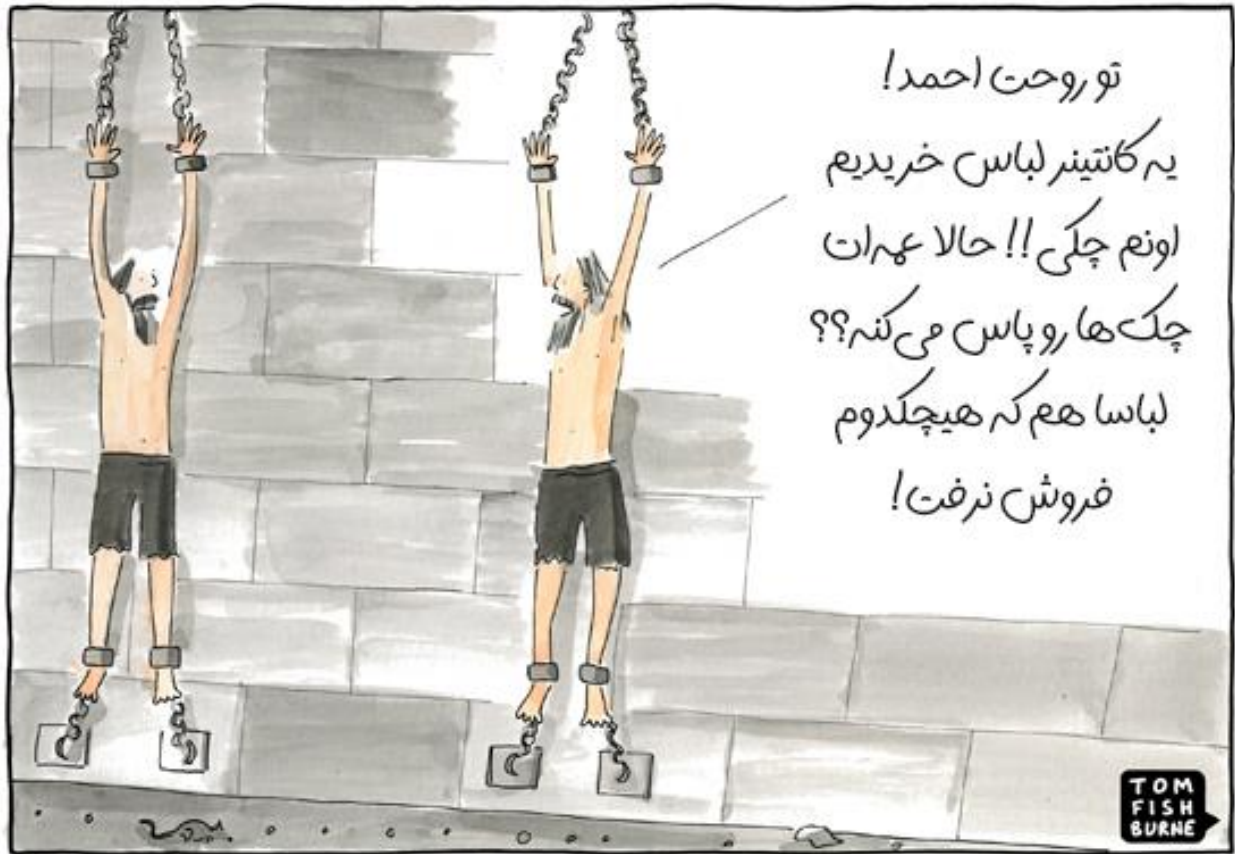 تو روحت احمد!
یه کانتینر لباس خریدیم
اونم چکی!! حالا عمه‌ات
چک‌ها رو پاس می‌کنه؟؟
لباسا هم که هیچکدوم
فروش نرفت!
TOM
FISH
BURNE